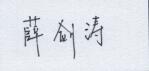 薛剑涛